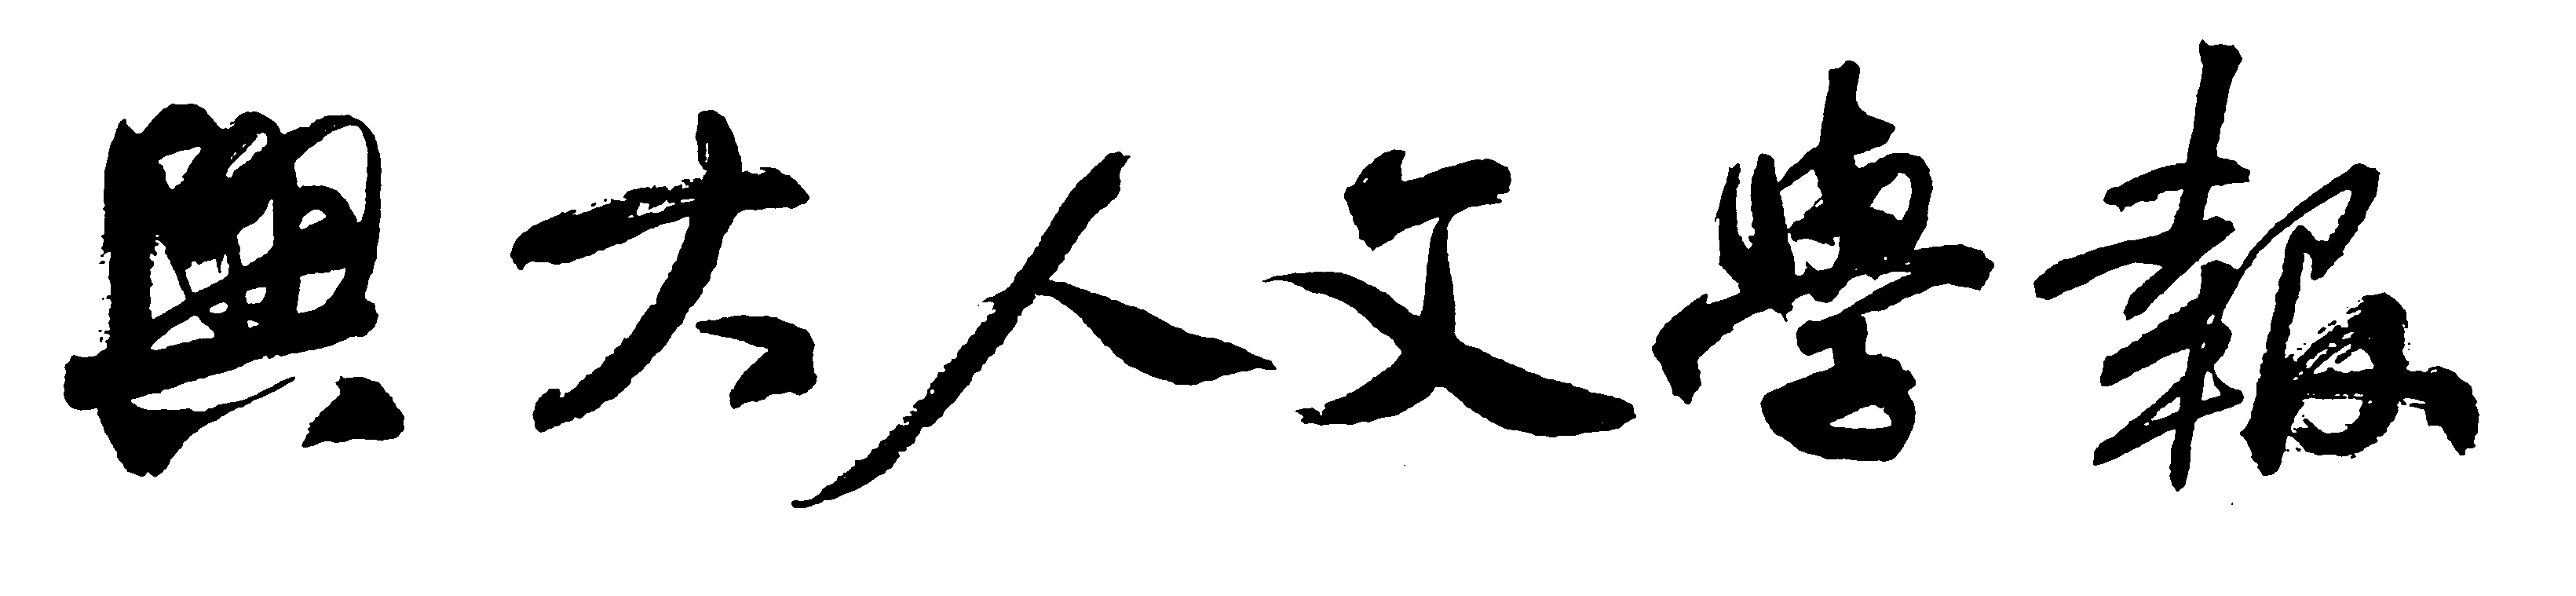 興大人文學報